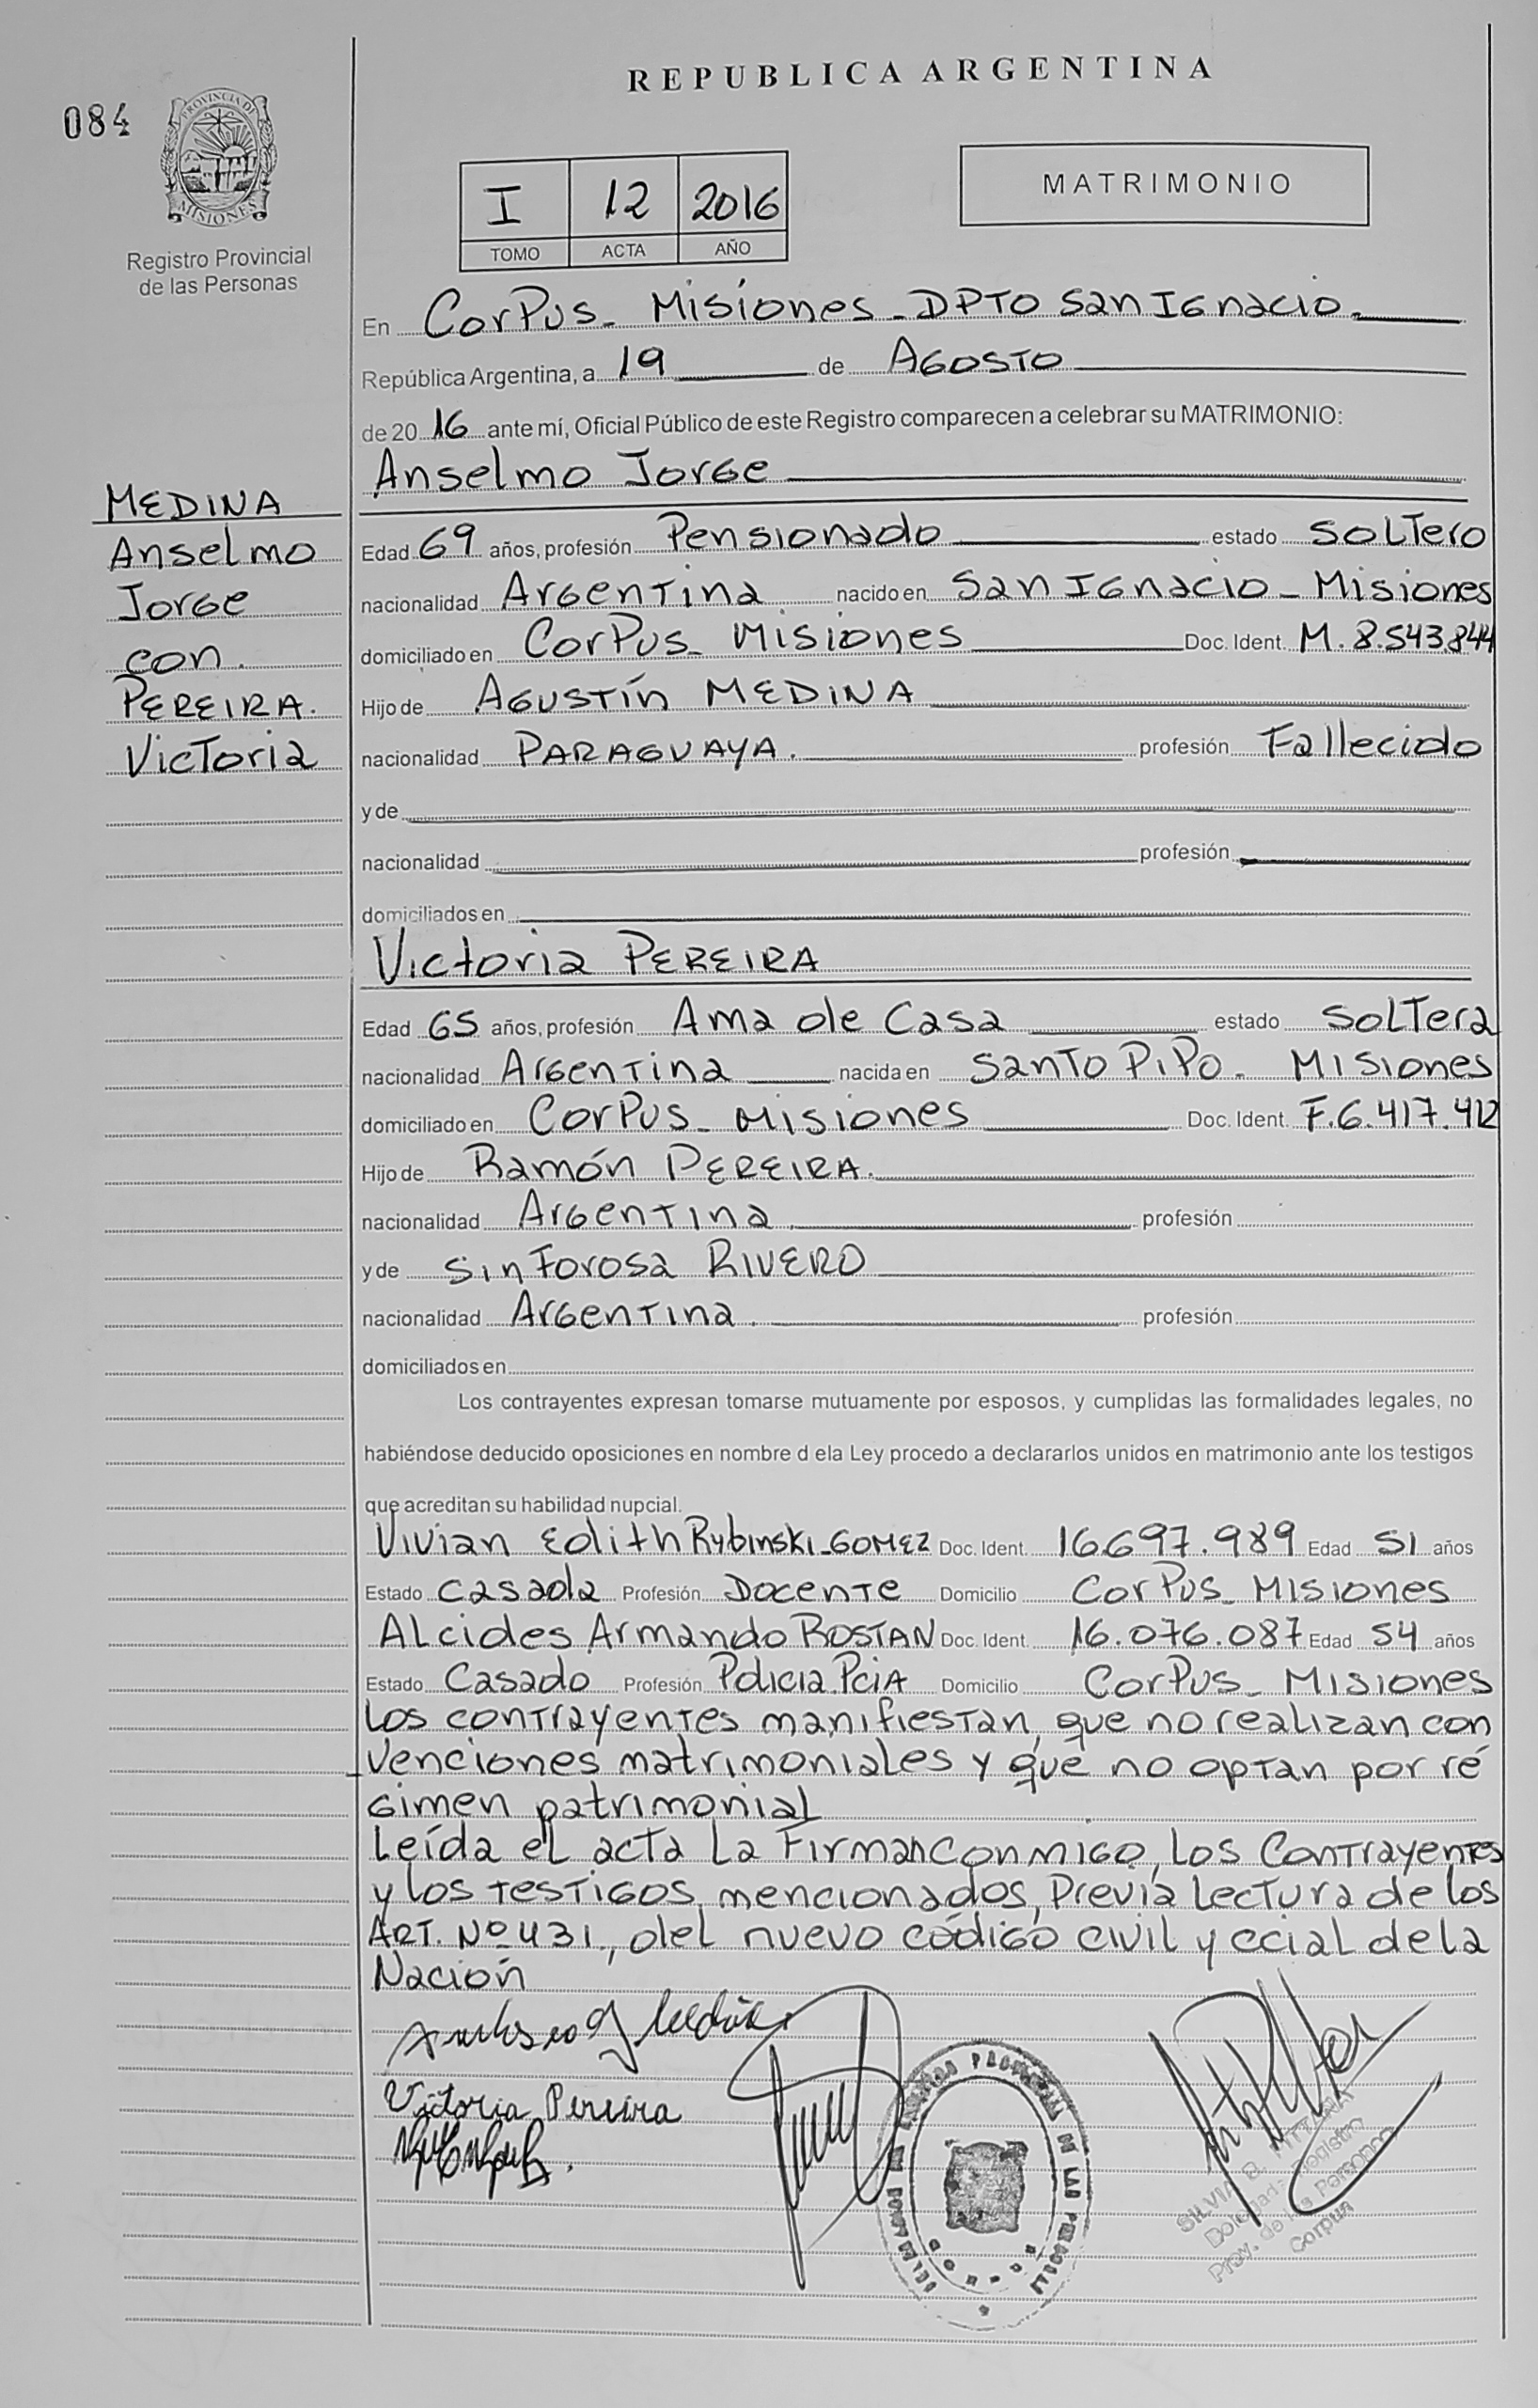 REPUBLICA ARGENTINA
084
PROVINCIA DE
MISIONES
Registro Provincial
de las Personas
I 12 2016
TOMO ACTA AÑO
MATRIMONIO
En Corpus - Misiones - DPTO San Ignacio.
República Argentina, a 19 de Agosto
de 20 16 ante mí, Oficial Público de este Registro comparecen a celebrar su MATRIMONIO:
Anselmo Jorge
MEDINA
Anselmo
Jorge
con.
PEREIRA.
Victoria
Edad 69 años, profesión Pensionado estado Soltero
nacionalidad Argentina nacido en San Ignacio - Misiones
domiciliado en Corpus - Misiones Doc. Ident. M. 8.543.844
Hijo de Agustín MEDINA
nacionalidad PARAGUAYA. profesión Fallecido
y de
nacionalidad profesión
domiciliados en
Victoria PEREIRA
Edad 65 años, profesión Ama de Casa estado Soltera
nacionalidad Argentina nacida en Santo Pipo - Misiones
domiciliado en Corpus - Misiones Doc. Ident. F. 6.417.412
Hijo de Ramón PEREIRA.
nacionalidad Argentina profesión
y de Sinforosa RIVERO
nacionalidad Argentina. profesión
domiciliados en
Los contrayentes expresan tomarse mutuamente por esposos, y cumplidas las formalidades legales, no
habiéndose deducido oposiciones en nombre d ela Ley procedo a declararlos unidos en matrimonio ante los testigos
que acreditan su habilidad nupcial.
Vivian Edith Rybinski - GOMEZ Doc. Ident. 16.697.989 Edad 51 años
Estado Casada Profesión Docente Domicilio Corpus - Misiones
Alcides Armando ROSTAN Doc. Ident. 16.076.087 Edad 54 años
Estado Casado Profesión Policia Pcia Domicilio Corpus - Misiones
Los contrayentes manifiestan, que no realizan con
venciones matrimoniales y que no optan por ré
gimen patrimonial
Leída el acta La Firman conmigo, los Contrayentes
y los testigos, mencionados, Previa Lectura de los
ART. Nº 431., del nuevo código civil y ccial de la
Nación
Victoria Pereira
REGISTRO PROVINCIAL DE LAS PERSONAS
SILVIA
Delegada Registro
Prov. de las Personas
Corpus